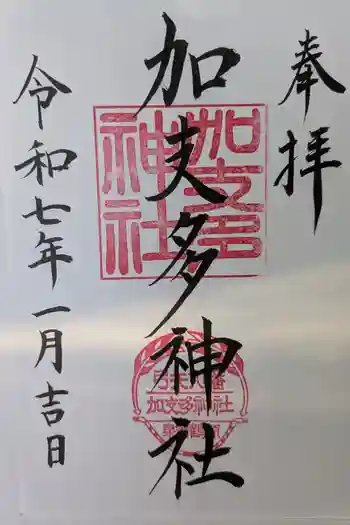 奉拝
加支多神社
令和七年一月吉日
加支多
神社
加支多神社